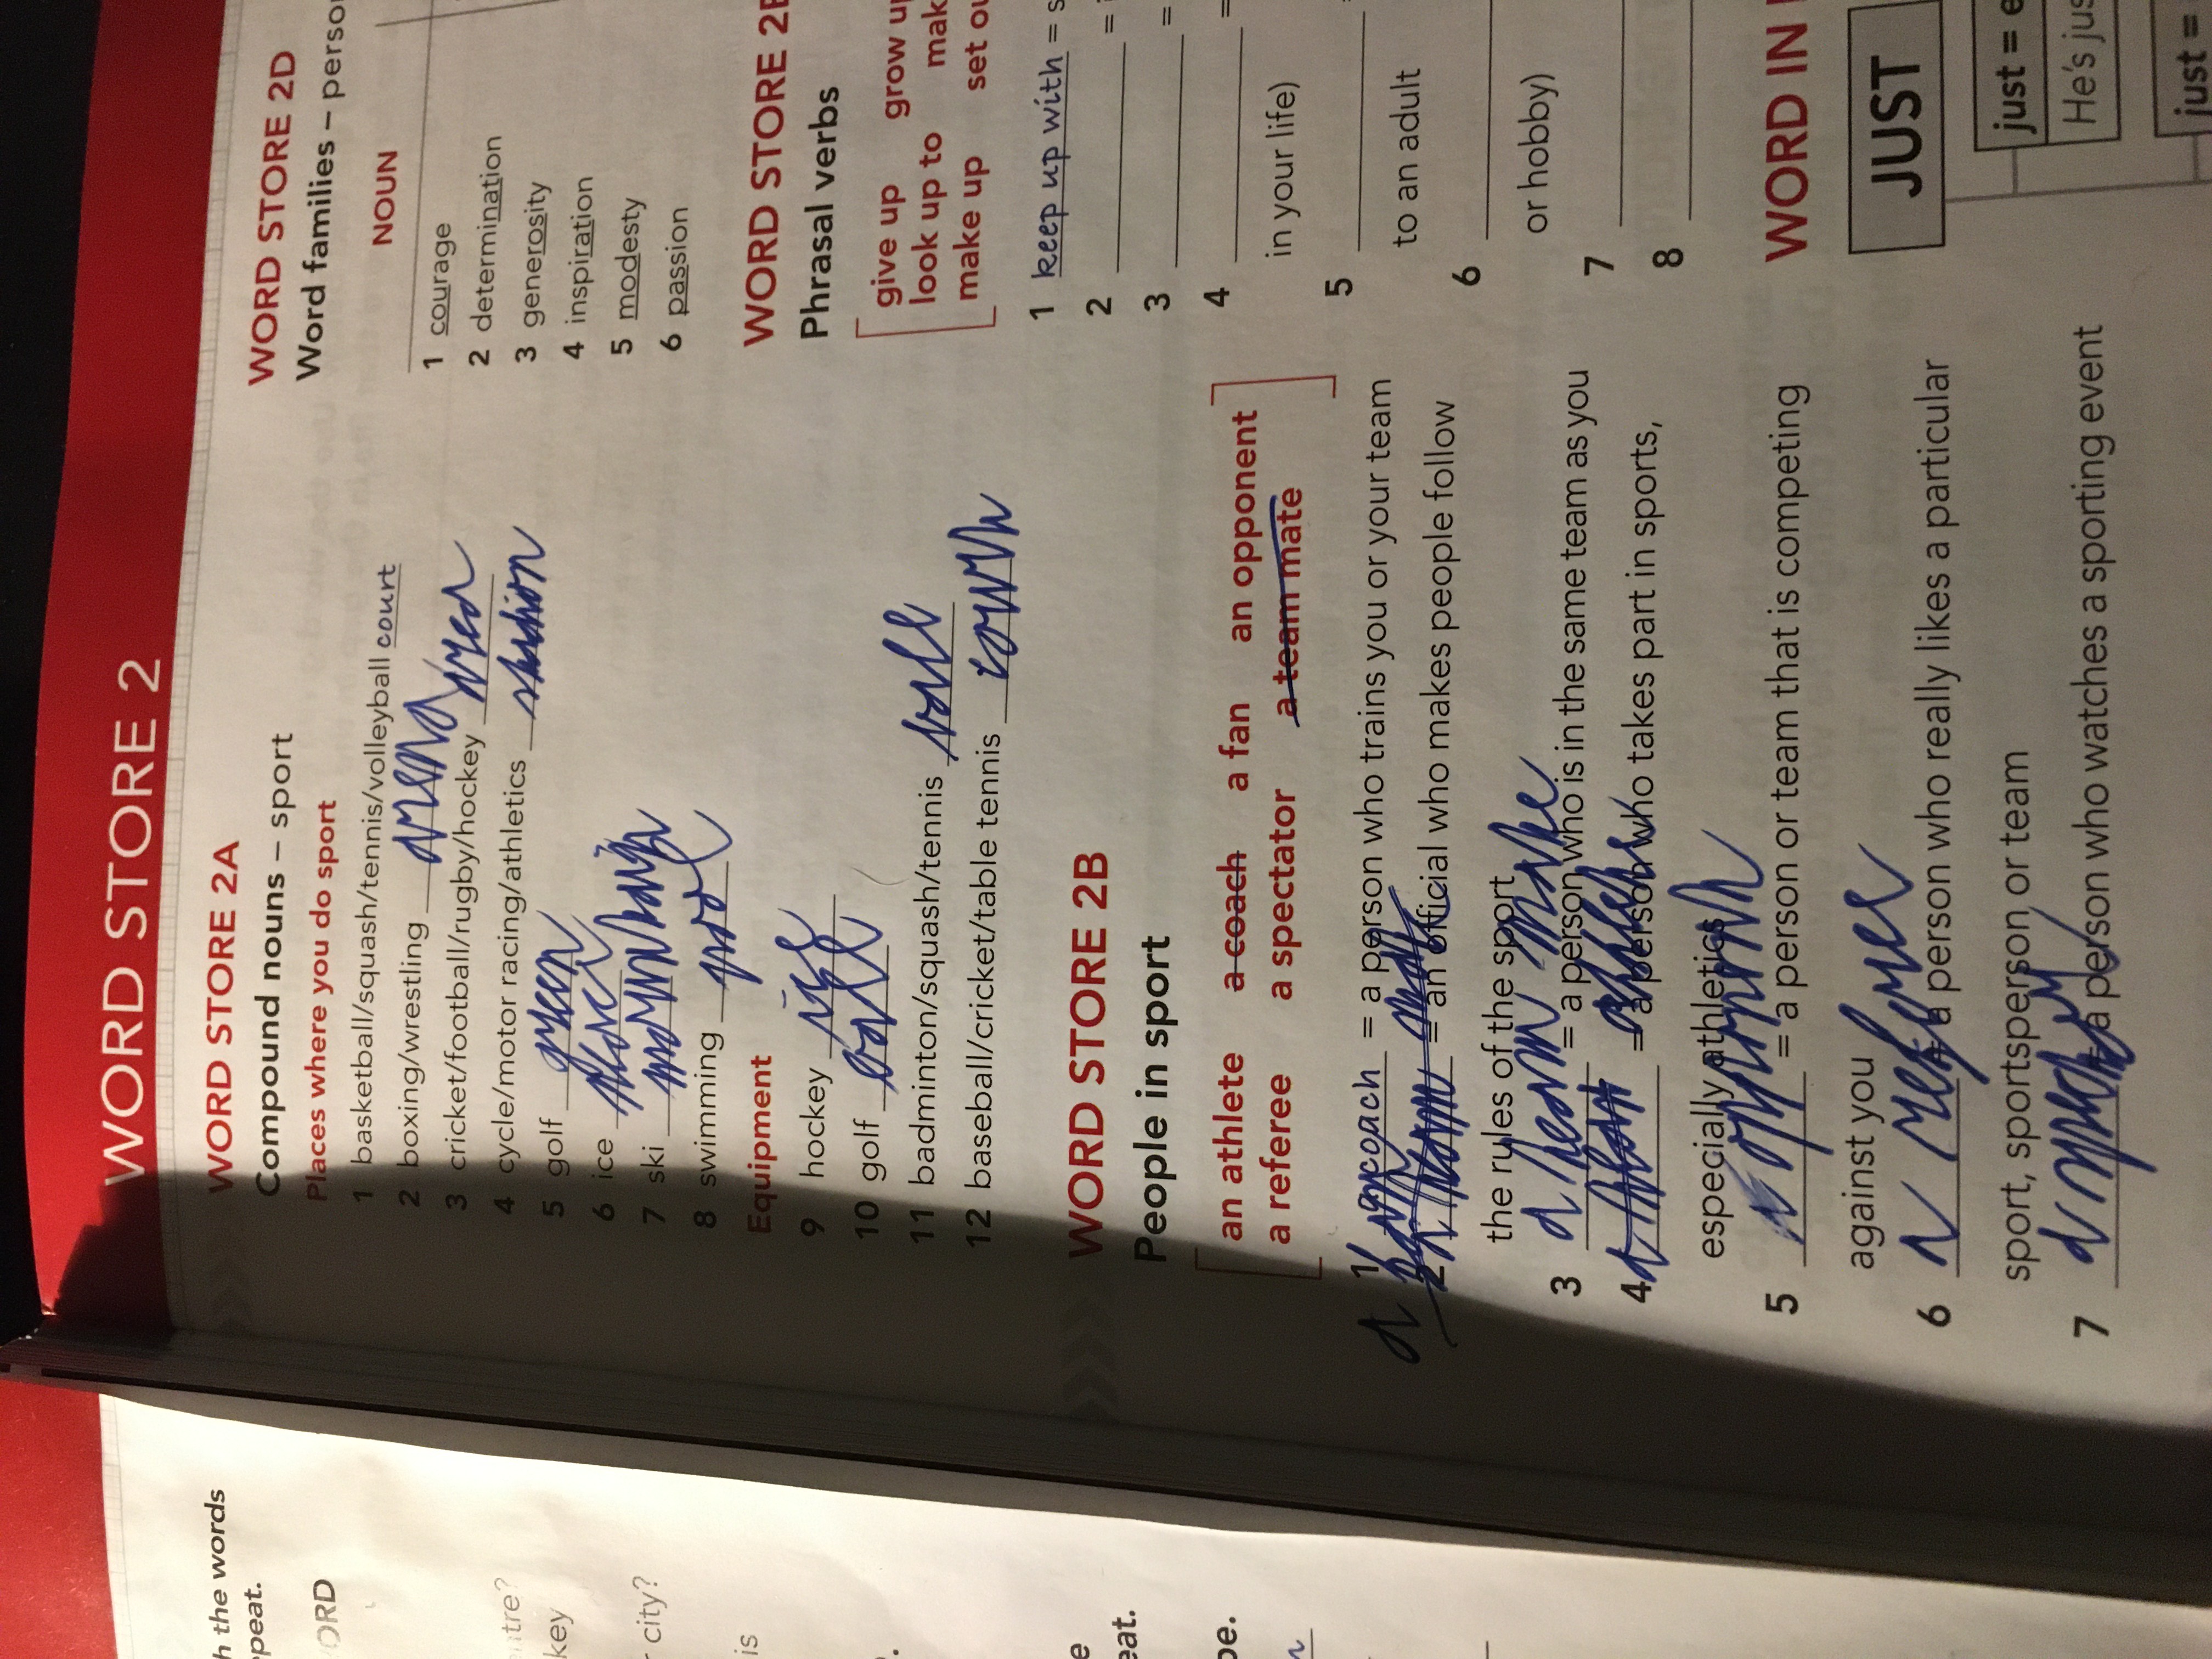 h the words
epeat.
ORD
ntre?
key
r city?
is
e
eat.
be.
WORD STORE 2
WORD STORE 2A
Compound nouns – sport
Places where you do sport
1 basketball/squash/tennis/volleyball court
2 boxing/wrestling arena
3 cricket/football/rugby/hockey
4 cycle/motor racing/athletics
5 golf green
6 ice
7 ski
8 swimming pool
Equipment
9 hockey ice
10 golf ball
11 badminton/squash/tennis ball
12 baseball/cricket/table tennis
WORD STORE 2B
People in sport
an athlete a coach a fan an opponent
a referee a spectator a team mate
1 a coach = a person who trains you or your team
a fan
2 a team mate = an official who makes people follow
the rules of the sport
3 a team mate = a person who is in the same team as you
4 a athlete = a person who takes part in sports,
especially athletics
5 opponent = a person or team that is competing
against you
6 a referee = a person who really likes a particular
sport, sportsperson or team
7 a = a person who watches a sporting event
WORD STORE 2D
Word families – perso
NOUN
1 courage
2 determination
3 generosity
4 inspiration
5 modesty
6 passion
WORD STORE 2E
Phrasal verbs
give up grow up
look up to mak
make up set ou
1 keep up with = s
2 =
3 =
4 =
in your life)
5
to an adult
6
or hobby)
7
8
WORD IN
JUST
just = e
He's jus
just =